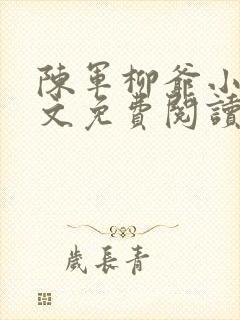 陳軍柳爺小
文免費閱讀
歲長青